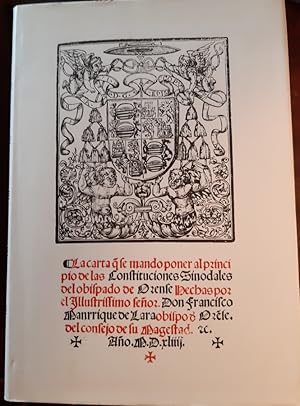 La carta q̃ se mando poner al princi
pio de las Constituciones Sinodales
del obispado de Orense Hechas por
el Illustrissimo señor. Don Francisco
Manrrique de Lara obispo d̓ Orẽse.
del consejo de su Magestad. ⁊c.
Año. M.D.xliiij.